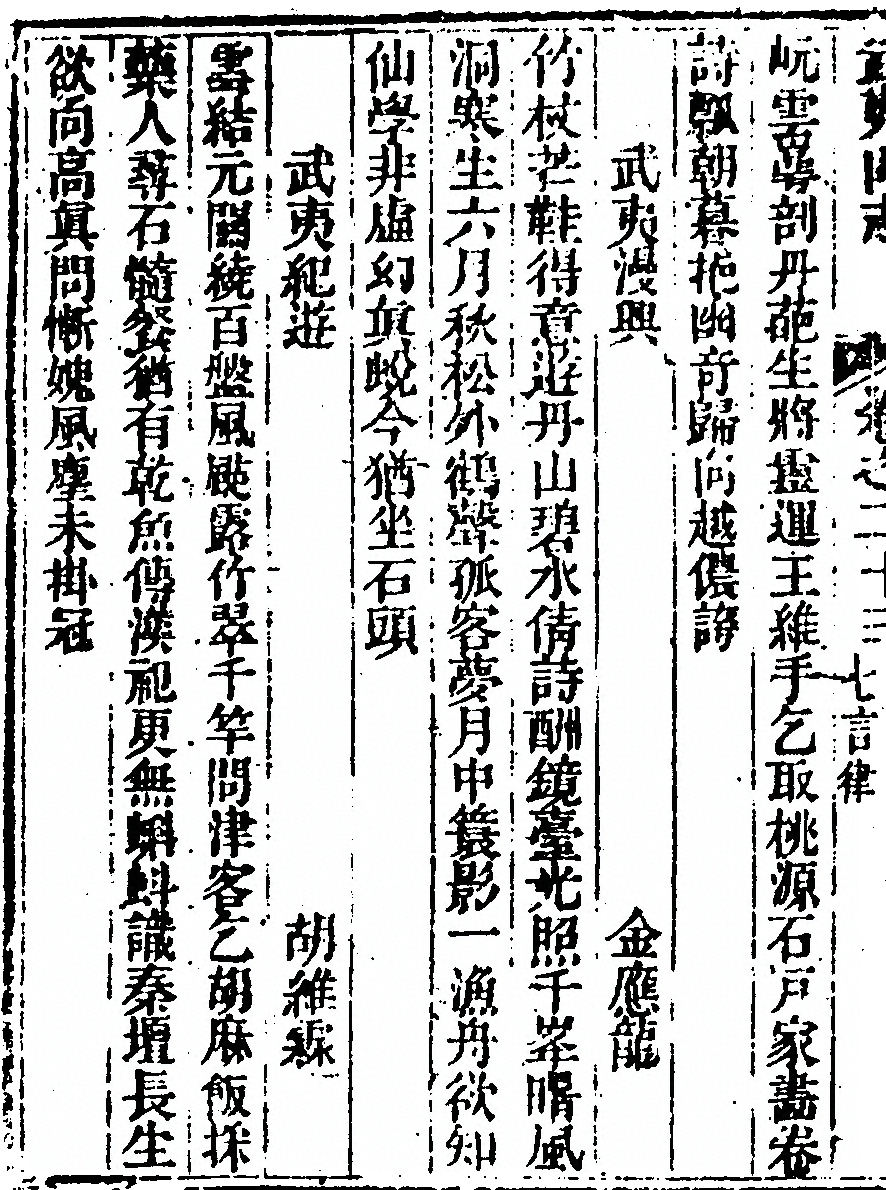 卷之二十三 七言律
雲 剖丹葩生將靈運王維手乞取桃源石戶家畫卷
詩瓢朝暮抱幽奇歸向越儂誇
武夷漫興 金應龍
竹杖芒鞋得意遊丹山碧水倩詩酬鏡臺光照千峯晴風
洞寒生六月秋松外鶴聲孤客夢月中簑影一漁舟欲知
仙學非虛幻眞蛻今猶坐石頭
武夷紀遊 胡維霖
雲結元關繞百盤風 露竹翠千竿問津客乞胡麻飯採
藥人尋石髓餐猶有乾魚傳漢祀更無蝌蚪識秦壇長生
欲向高眞問慚媿風塵未掛冠